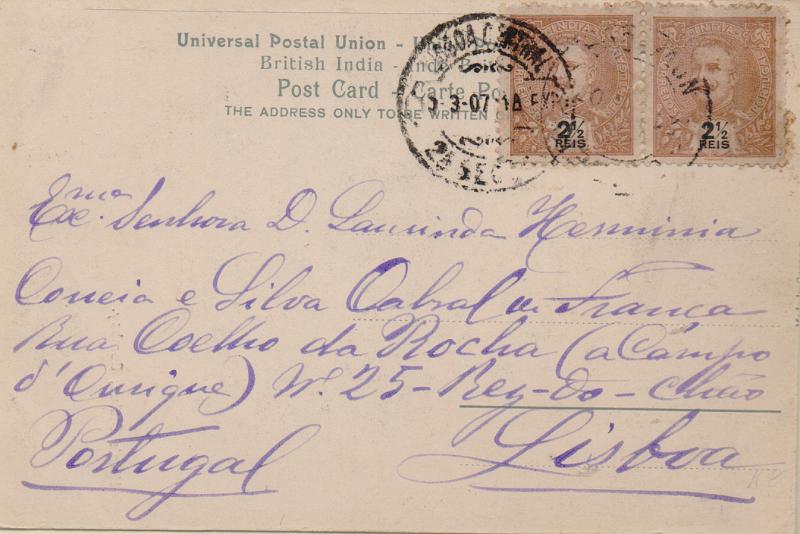 Universal Postal Union -
British India -
Post Card - Carte Po
THE ADDRESS ONLY TO BE WRITTEN
3-07
INDIA
2½
REIS
INDIA
2½
REIS
Exc.ma Senhora D. Laurinda Herminia
Correia e Silva Cabral de França
Rua Coelho da Rocha (a Campo
d'Ourique) Nº 25 - Rez-do-chão
Portugal Lisboa